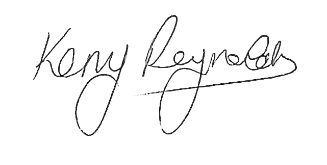 Kerry Reynolds